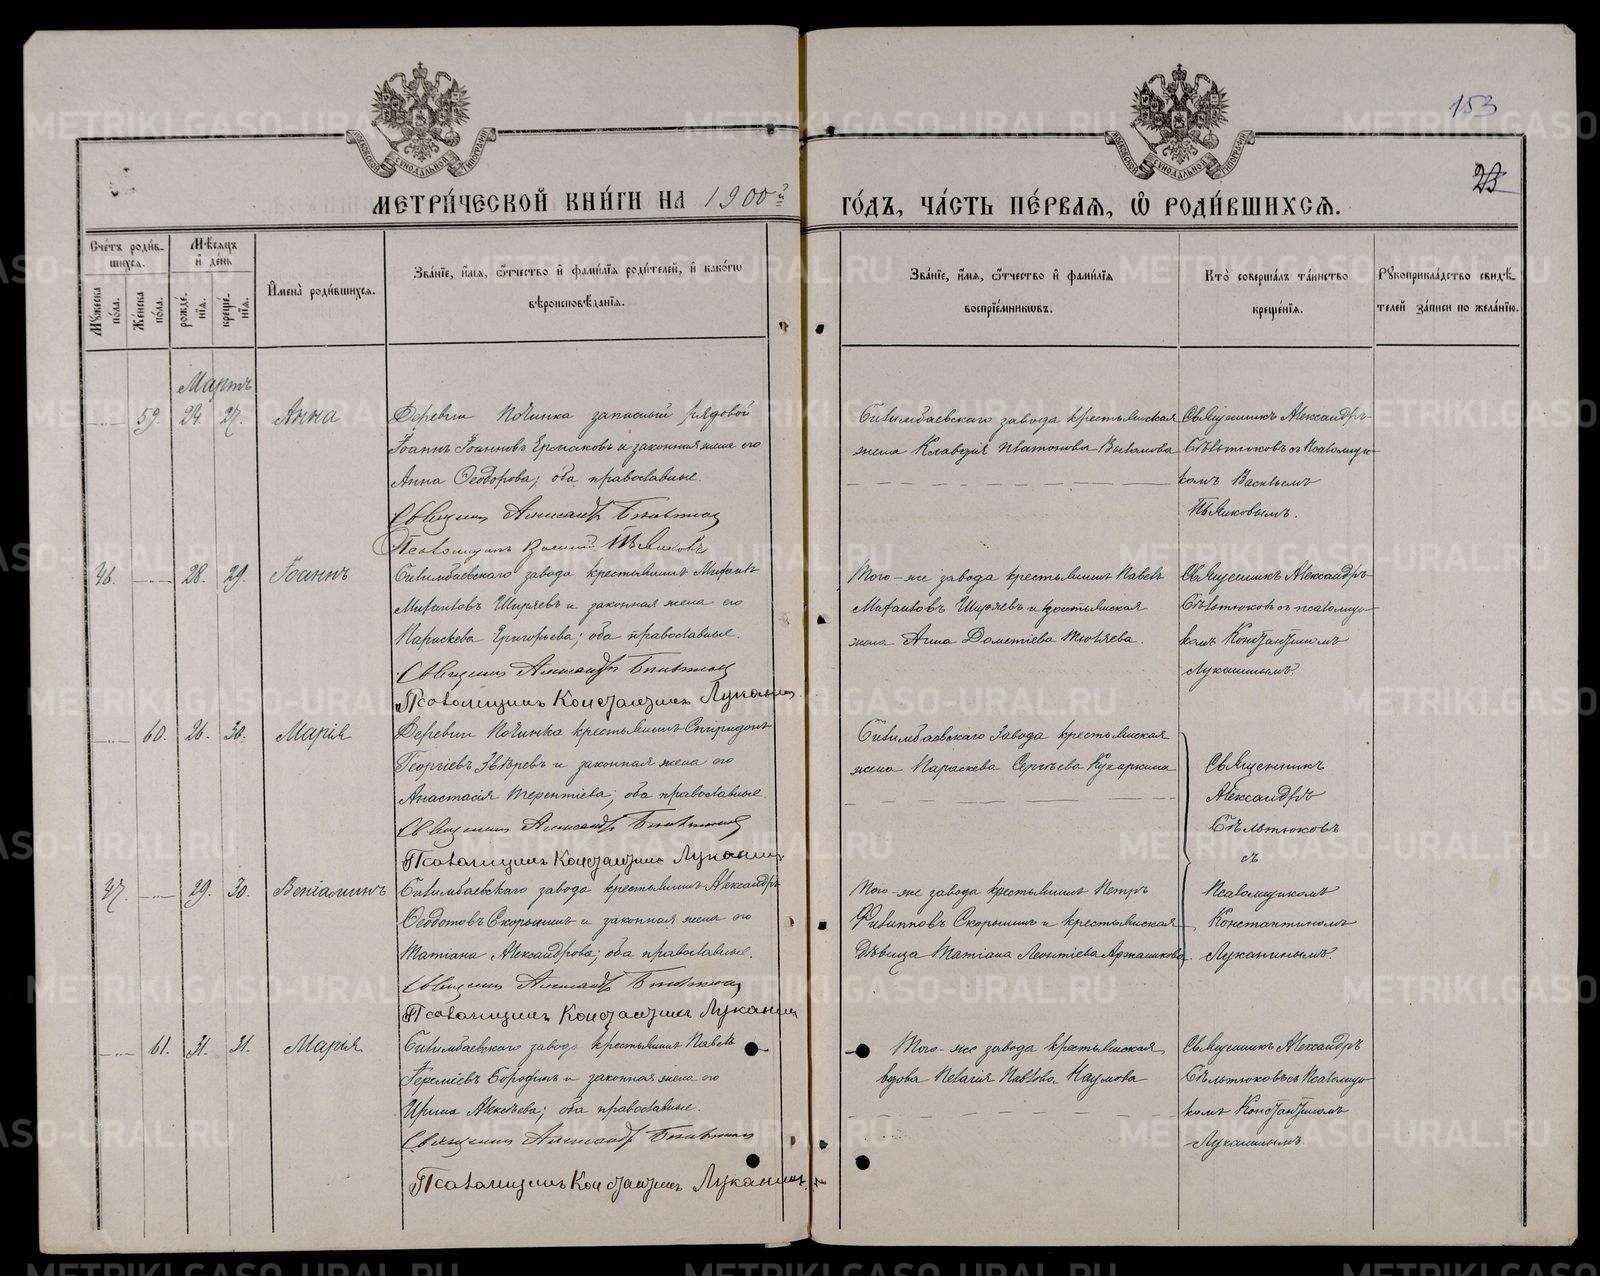 153
23
МЕТРИ́ЧЕСКОЙ КНИ́ГИ НА 1900й
ГО́ДЪ, ЧА́СТЬ ПЕ́РВАЯ, Ѡ РОДИ́ВШИХСЯ.
Сче́тъ роди́в-
шихся.
Мѣсяцъ
и́ день
Мꙋжеска по́ла.
Же́нска по́ла.
рожде́нїя.
креще́нїя.
И҆мена̀ роди́вшихся.
Зва́нїе, и҆́мя, ѻ҆́тчество и҆ фами́лїя роди́телей, и҆ како́гѡ
вѣроисповѣ́данїя.
Зва́нїе, и҆́мя, ѻ҆́тчество и҆ фами́лїя
воспрїе́мникѡвъ.
Кто̀ соверша́лъ та́инство
креще́нїя.
Рꙋкоприкла́дство свидѣ́-
телей за́писи по жела́нїю.
Мартъ
59. 24. 27. Анна
Деревни Починка запасный рядовой
Іоаннъ Іоанновъ Ермаковъ и законная жена его
Анна Ѳеодорова; оба православные.
Священник Александръ
Псаломщикъ Василій
Билимбаевскаго завода крестьянская
жена Клавдія Платонова
Священникъ Александръ
съ Псаломщи-
комъ Василіемъ
46. 28. 29. Іоаннъ
Билимбаевскаго завода крестьянинъ Михаилъ
Михаиловъ Ширяевъ и законная жена его
Параскева Григорьева; оба православные.
Священник Александръ
Псаломщикъ Константинъ Луканинъ
Того-же завода крестьянинъ Павелъ
Михаиловъ Ширяевъ и крестьянская
жена Анна Дометіева
Священникъ Александръ
съ псаломщи-
комъ Константиномъ
Луканинымъ.
60. 26. 30. Марія
Деревни Починка крестьянинъ Спиридонъ
Георгіевъ Звѣревъ и законная жена его
Анастасія Терентіева; оба православные
Священник Александръ
Псаломщикъ Константинъ Луканинъ
Билимбаевскаго Завода крестьянская
жена Параскева Сергѣева Кухаркина
Священникъ
Александръ
съ
47. 29. 30. Веніаминъ
Билимбаевскаго завода крестьянинъ Александръ
Ѳедотовъ Скорынинъ и законная жена его
Татіана Александрова; оба православные.
Священник Александръ
Псаломщикъ Константинъ Луканинъ
Того-же завода крестьянинъ Петръ
Филипповъ Скорынинъ и крестьянская
дѣвица Татіана Леонтіева
Псаломщикомъ
Константиномъ
Луканинымъ.
61. 31. 31. Марія
Билимбаевскаго завода крестьянинъ Павелъ
Іереміевъ Бородинъ и законная жена его
Ирина Алексѣева; оба православные.
Священник Александръ
Псаломщикъ Константинъ Луканинъ
Того-же завода крестьянская
вдова Пелагія Павлова Наумова
Священникъ Александръ
съ Псаломщи-
комъ Константиномъ
Луканинымъ.
METRIKI.GASO-URAL.RU